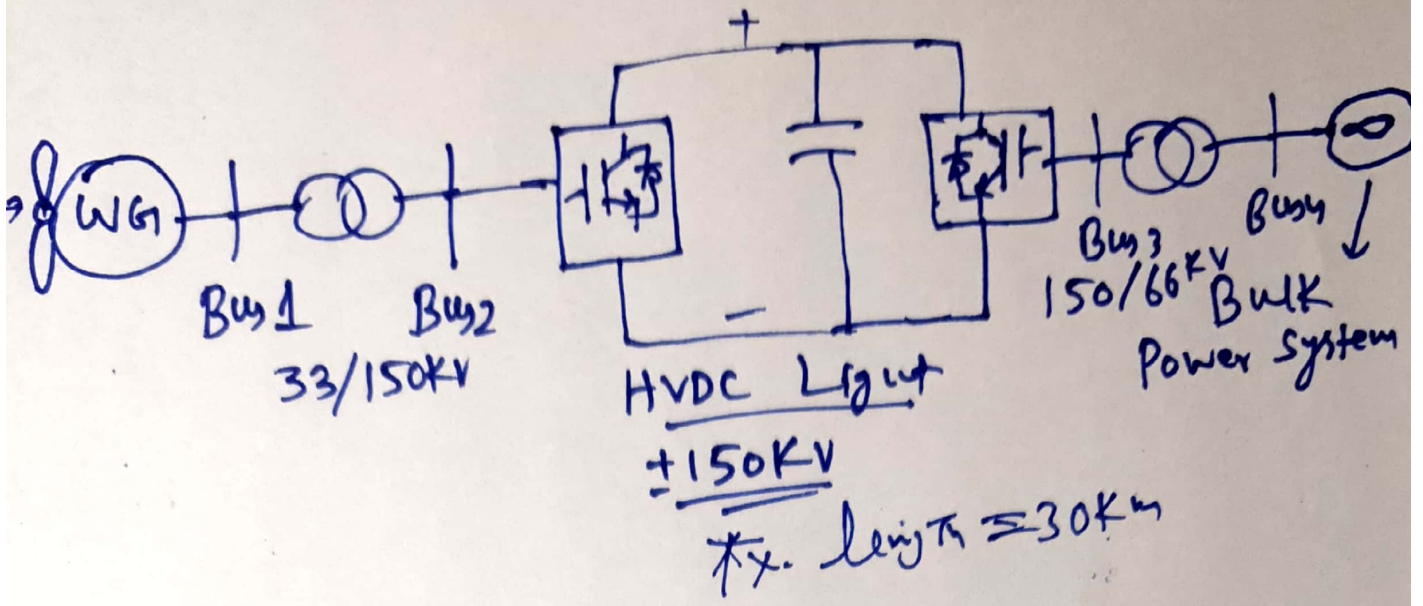 +
WG
Bus 1
Bus2
33/150KV
-
HVDC Light
±150KV
Tx. length = 30Km
Bus 3
150/66KV
Bus4
∞
Bulk
Power System